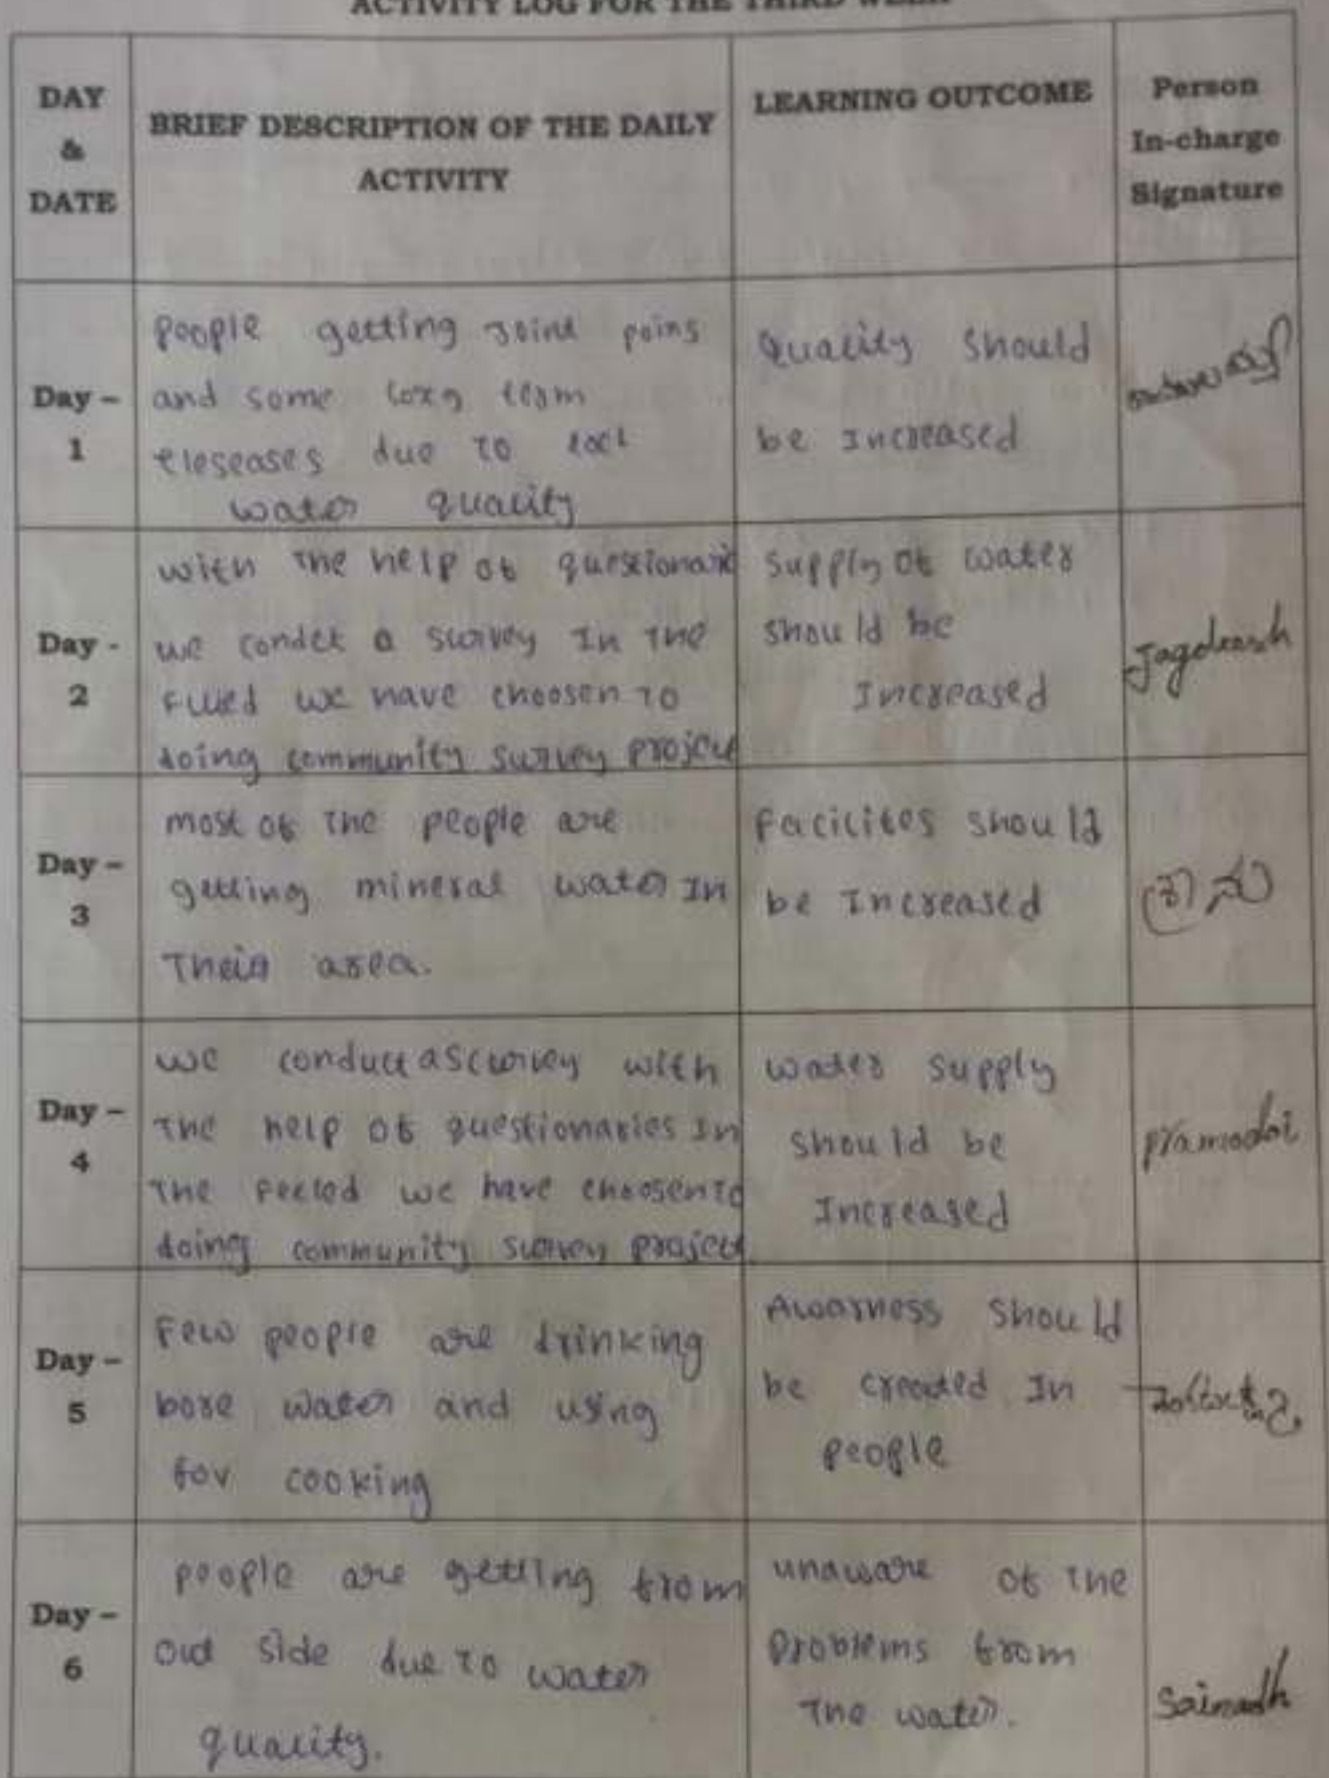 ACTIVITY LOG FOR THE THIRD WEEK
DAY
&
DATE
BRIEF DESCRIPTION OF THE DAILY
ACTIVITY
LEARNING OUTCOME
Person
In-charge
Signature
Day –
1
people getting Joint pains
and some long team
due to
water quality
Quality should
be Increased
Day -
2
with the help of questionarie
we condct a survey In the
we have choosen to
doing community survey project
supply of water
should be
Increased
Day –
3
most of the people are
getting mineral water In
Their area.
Facilites should
be Increased
Day –
4
we conduct a survey with
The help of questionaries In
The we have choosen to
doing community survey project
water supply
should be
Increased
Day –
5
Few people are drinking
bore water and using
for cooking
Awarness should
be created In
people
Day –
6
people are getting from
out side due to water
quality.
unaware of the
problems from
The water.
Sainadh